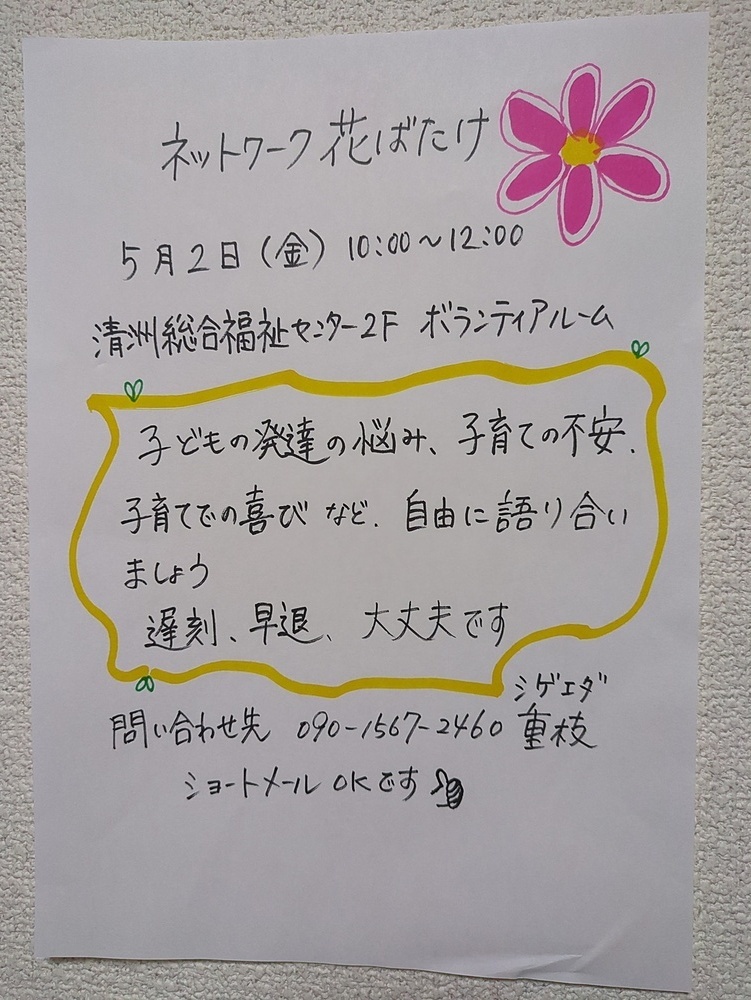 ネットワーク花ばたけ
5月2日（金）10:00～12:00
清洲総合福祉センター2F ボランティアルーム
子どもの発達の悩み、子育ての不安、
子育てでの喜び など、自由に語り合い
ましょう
遅刻、早退、大丈夫です
シゲエダ
問い合わせ先 090-1567-2460 重枝
ショートメール OKです